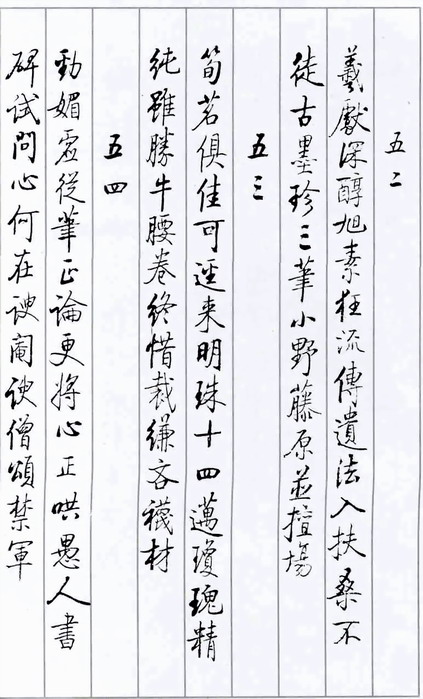 五二
羲獻深醇旭素狂流傳遺法入扶桑不
徒古墨珍三筆小野藤原並擅場
五三
筍茗俱佳可逕来明珠十四邁瓊瑰精
純雖勝牛腰卷終惜裁縑吝襪材
五四
勁媚盡從筆正論更將心正哄愚人書
碑試問心何在諛閹諛僧頌禁軍